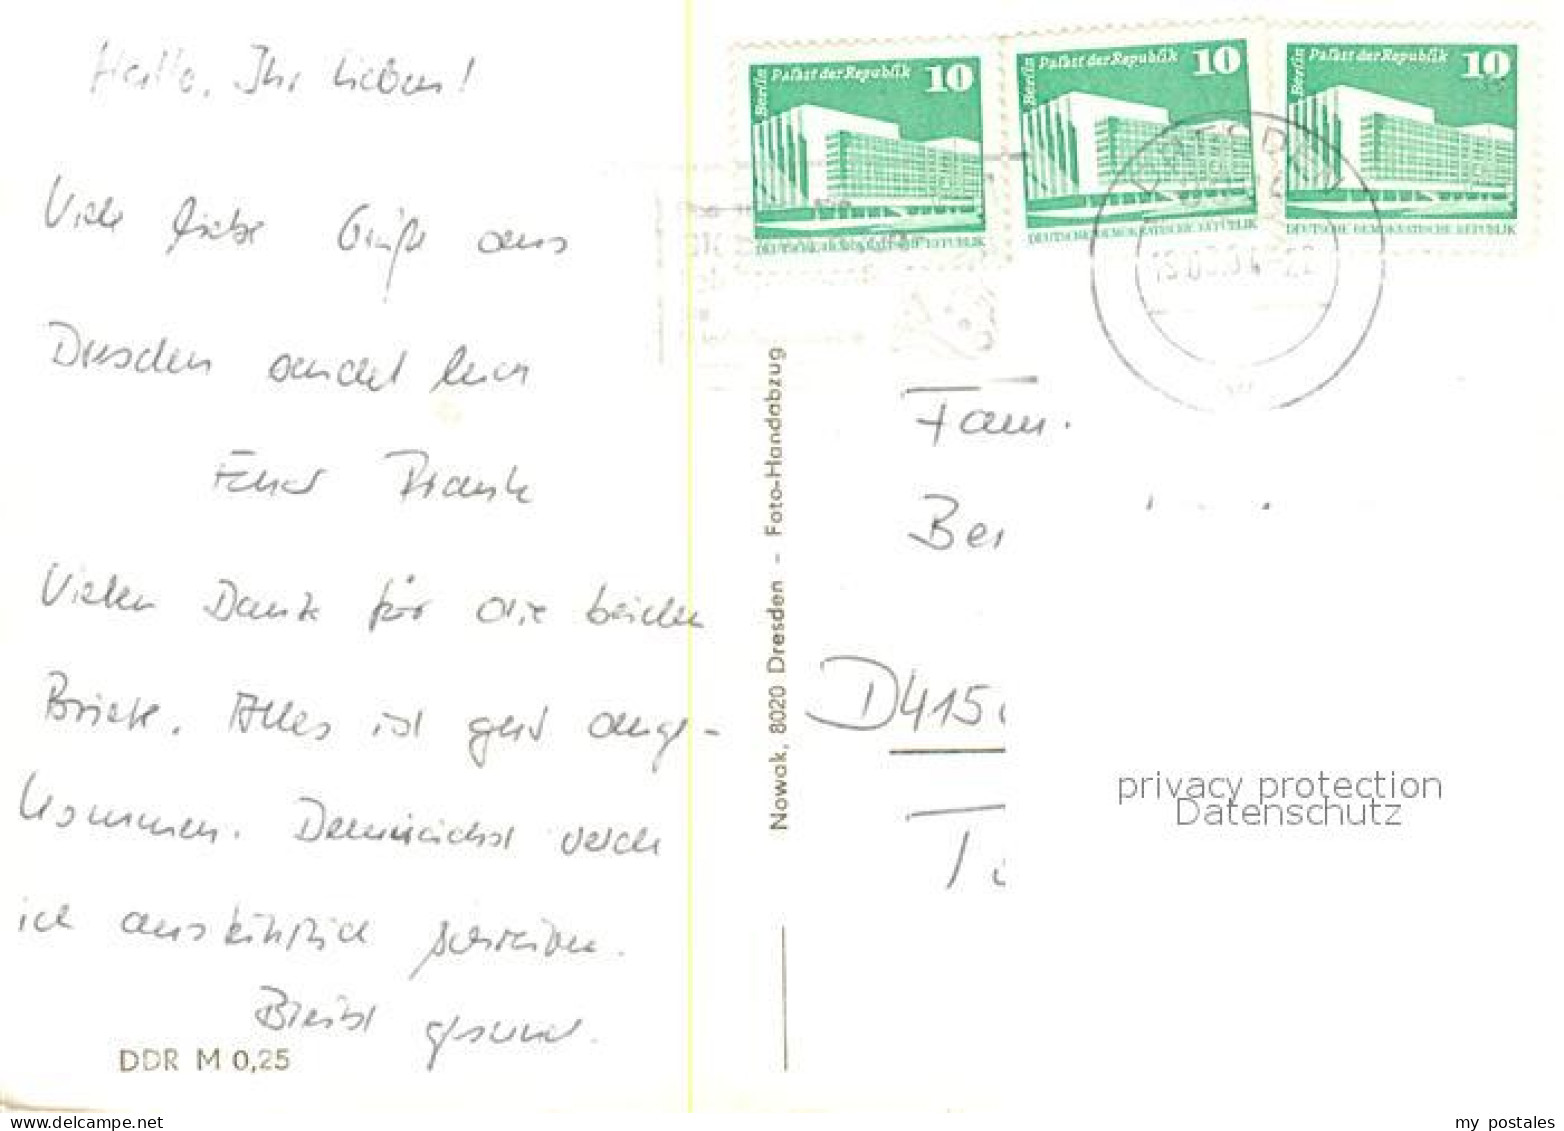 Hallo, Ihr Lieben!
Viele liebe Grüße aus
Dresden sendet Euch
Euer Frank
Vielen Dank für die beiden
Briefe. Alles ist gut ange-
kommen. Demnächst werde
ich ausführlich schreiben.
Bleibt gesund.
DDR M 0,25
Nowak, 8020 Dresden – Foto-Handabzug
Berlin Palast der Republik 10
DEUTSCHE DEMOKRATISCHE REPUBLIK
Berlin Palast der Republik 10
DEUTSCHE DEMOKRATISCHE REPUBLIK
Berlin Palast der Republik 10
DEUTSCHE DEMOKRATISCHE REPUBLIK
DRESDEN
Fam.
D415
privacy protection
Datenschutz
my postales